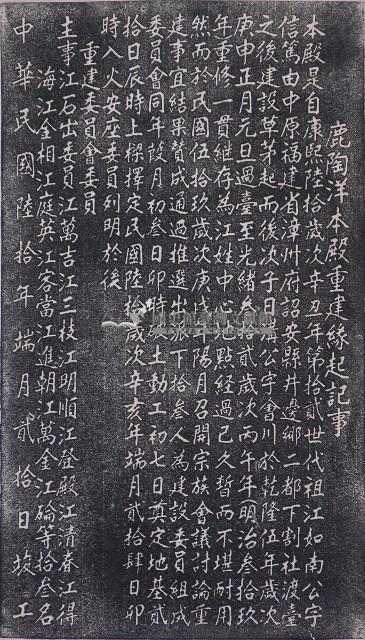 鹿陶洋本殿重建緣起記事
本殿是自康熙陸拾歲次辛丑年第拾貳世代祖江如南公字
信篤由中原福建省漳州府詔安縣井邊鄉二都下割社渡臺
之後建設草茅起而後次子日溝公字會川於乾隆伍年歲次
庚申正月元旦過臺至光緒叁拾貳歲次丙午年明治叁拾玖
年重修一貫繼存為江姓中心地點經過已久暫而不堪耐用
然而於民國伍拾玖歲次庚戌年陽月召開宗族會議討論重
建事宜結果贊成通過推選出派下拾叁人為建設委員組成
委員會同年葭月初叁日卯時破土動工初七日奠定地基貳
拾日辰時上樑擇定民國陸拾歲次辛亥年端月貳拾肆日卯
時入火安座委員列明於後
重建委員會委員
主事江石出委員江萬吉江三枝江明順江登殿江清春江得
海江全相江庭英江客當江進朝江萬金江碖等拾叁名
中華民國陸拾年端月貳拾日竣工